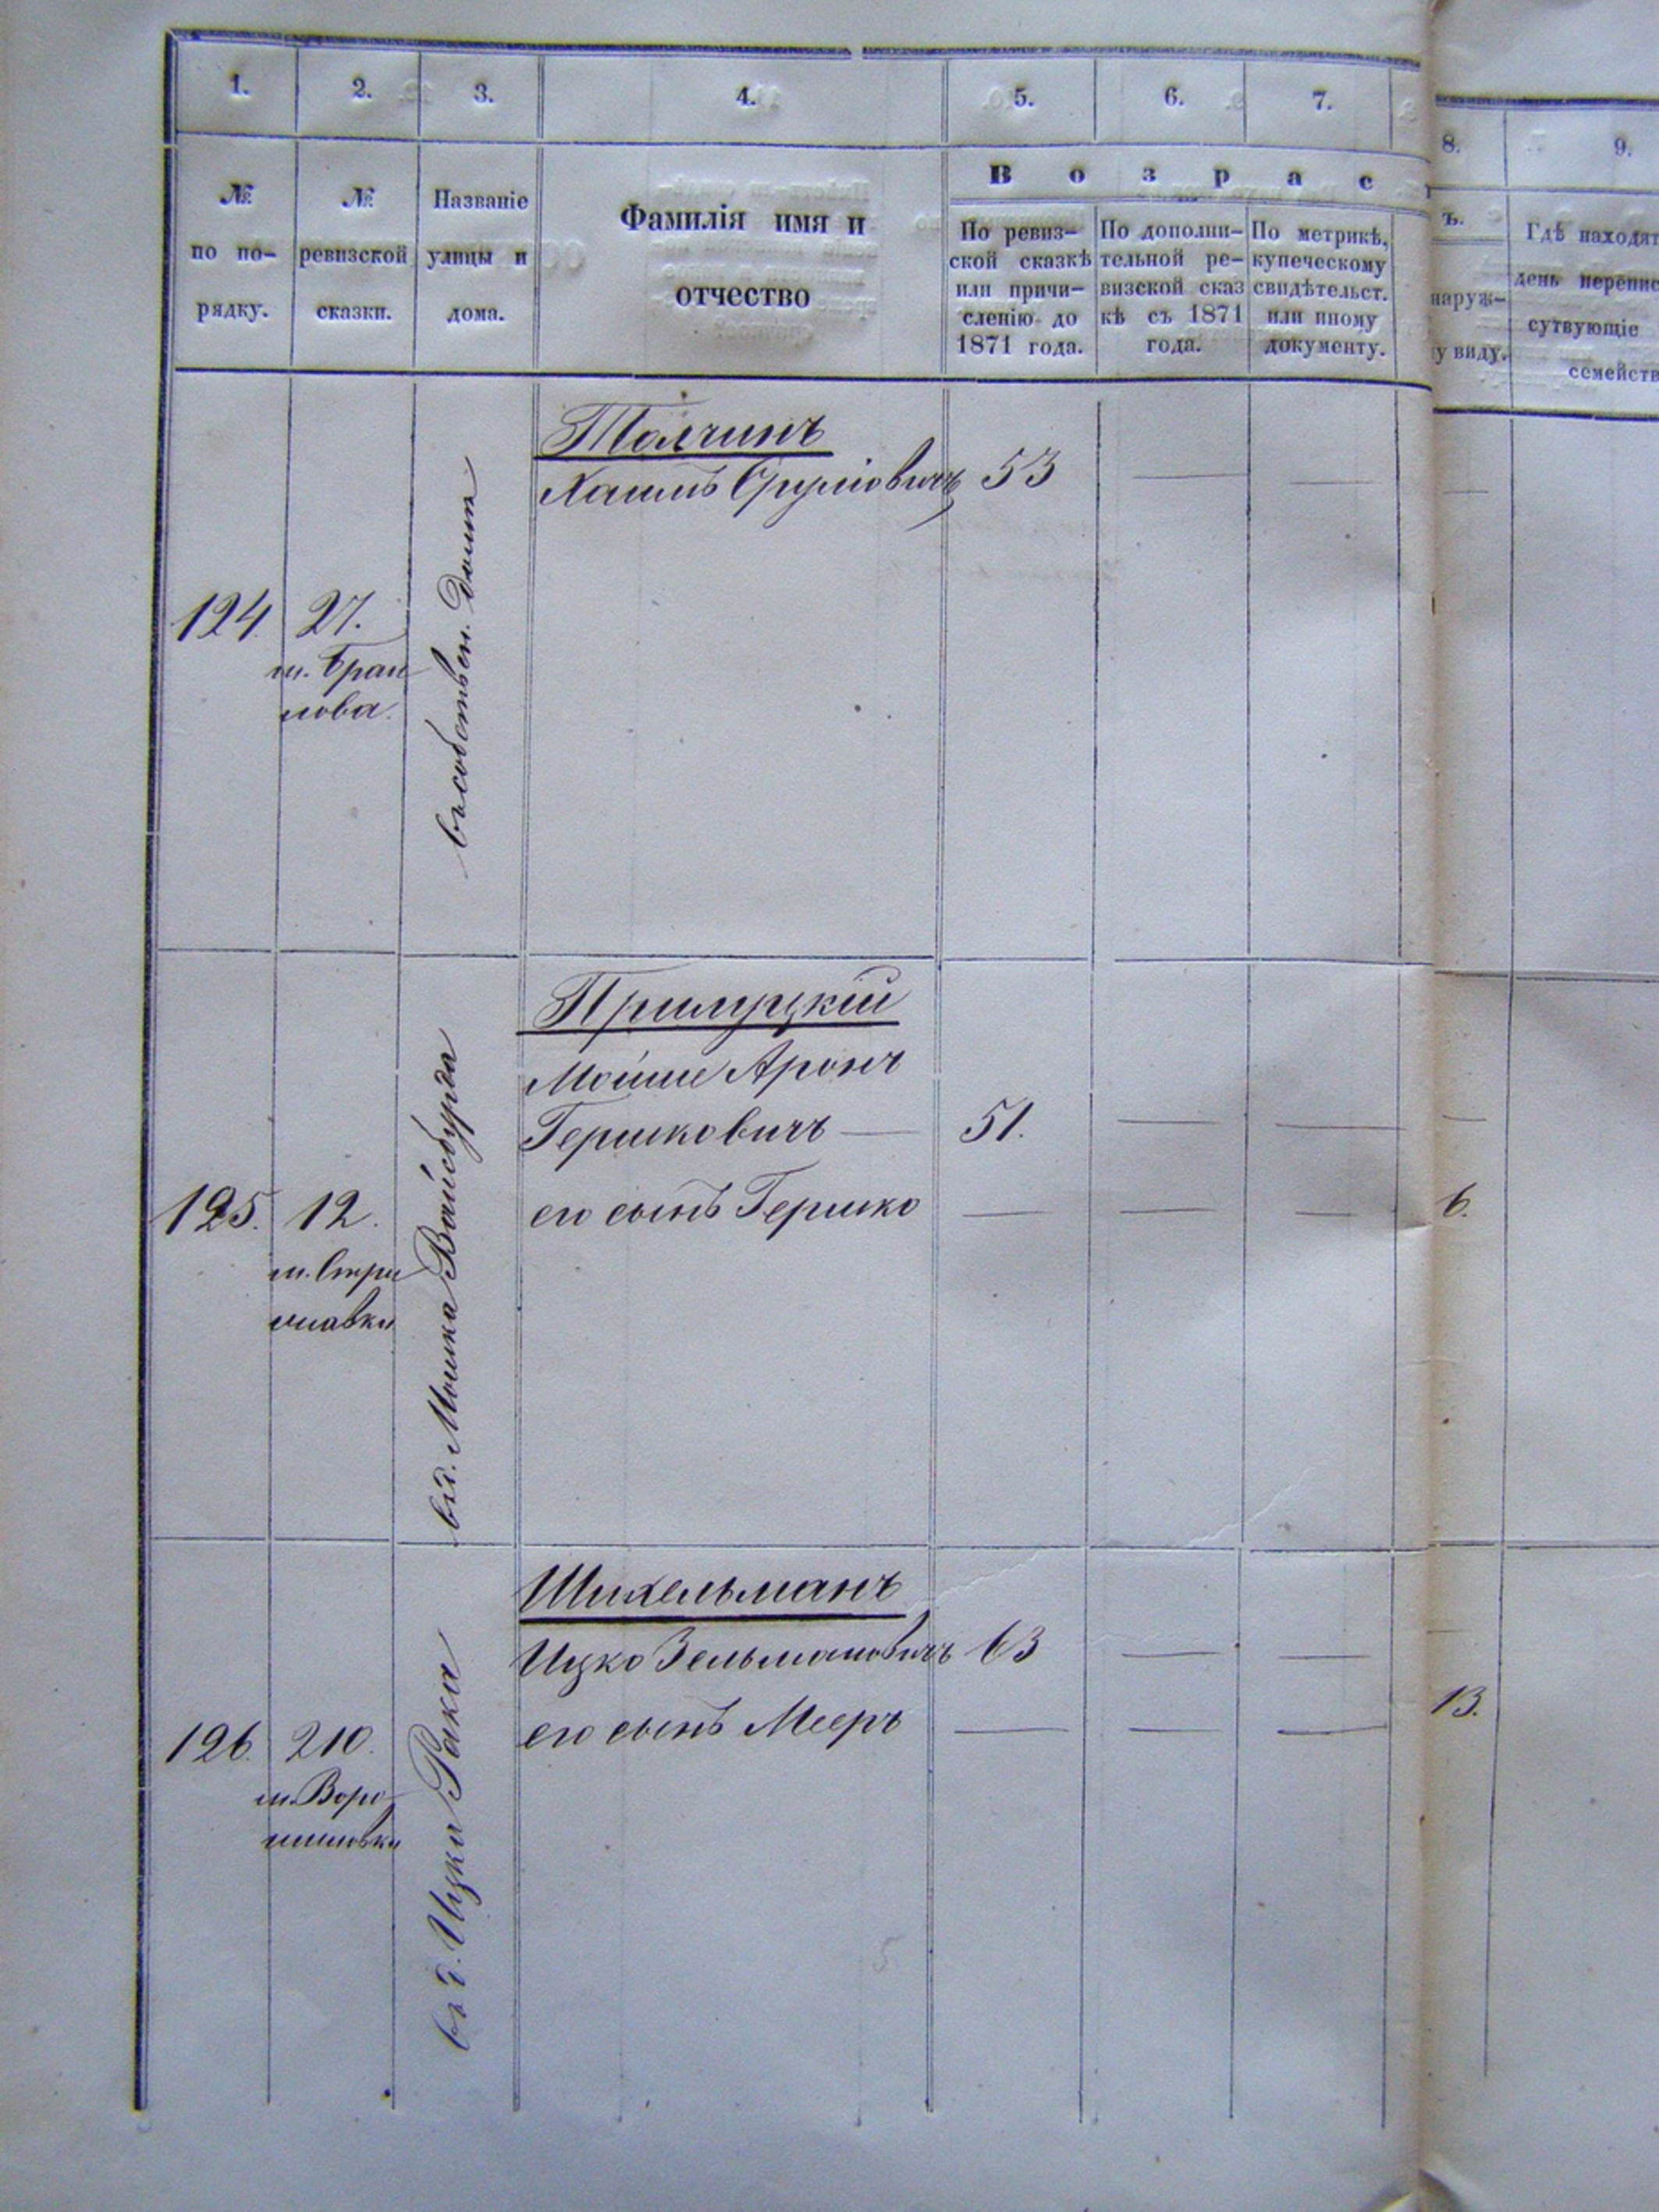 1. 2. 3. 4. 5. 6. 7. 8. 9.
№ по по-
рядку.
№ ревизской
сказки.
Названіе
улицы и
дома.
Фамилія имя и
отчество
Возрас
ъ.
По ревиз-
ской сказкѣ
или причи-
сленію до
1871 года.
По дополни-
тельной ре-
визской сказ
кѣ съ 1871
года.
По метрикѣ,
купеческому
свидѣтельст.
или иному
документу.
наруж-
у виду.
Гдѣ находят
день перепис
сутвующіе
семейств
124. 27.
м. Браи
лова.
въ собствен. домѣ
Толчинъ
Хаимъ 53 — — —
125. 12.
м. Стри
жавки
въ д. Мошка Вайсбурда
Прилуцкій
Мойше Аронъ
Гершковичъ — 51. — — —
его сынъ Гершко — — — 6.
126. 210.
м. Воро-
новки
въ д. Ицки Рака
Шихельманъ
Ицко Зельмановичъ 63 — — —
его сынъ Мееръ — — — 13.
5